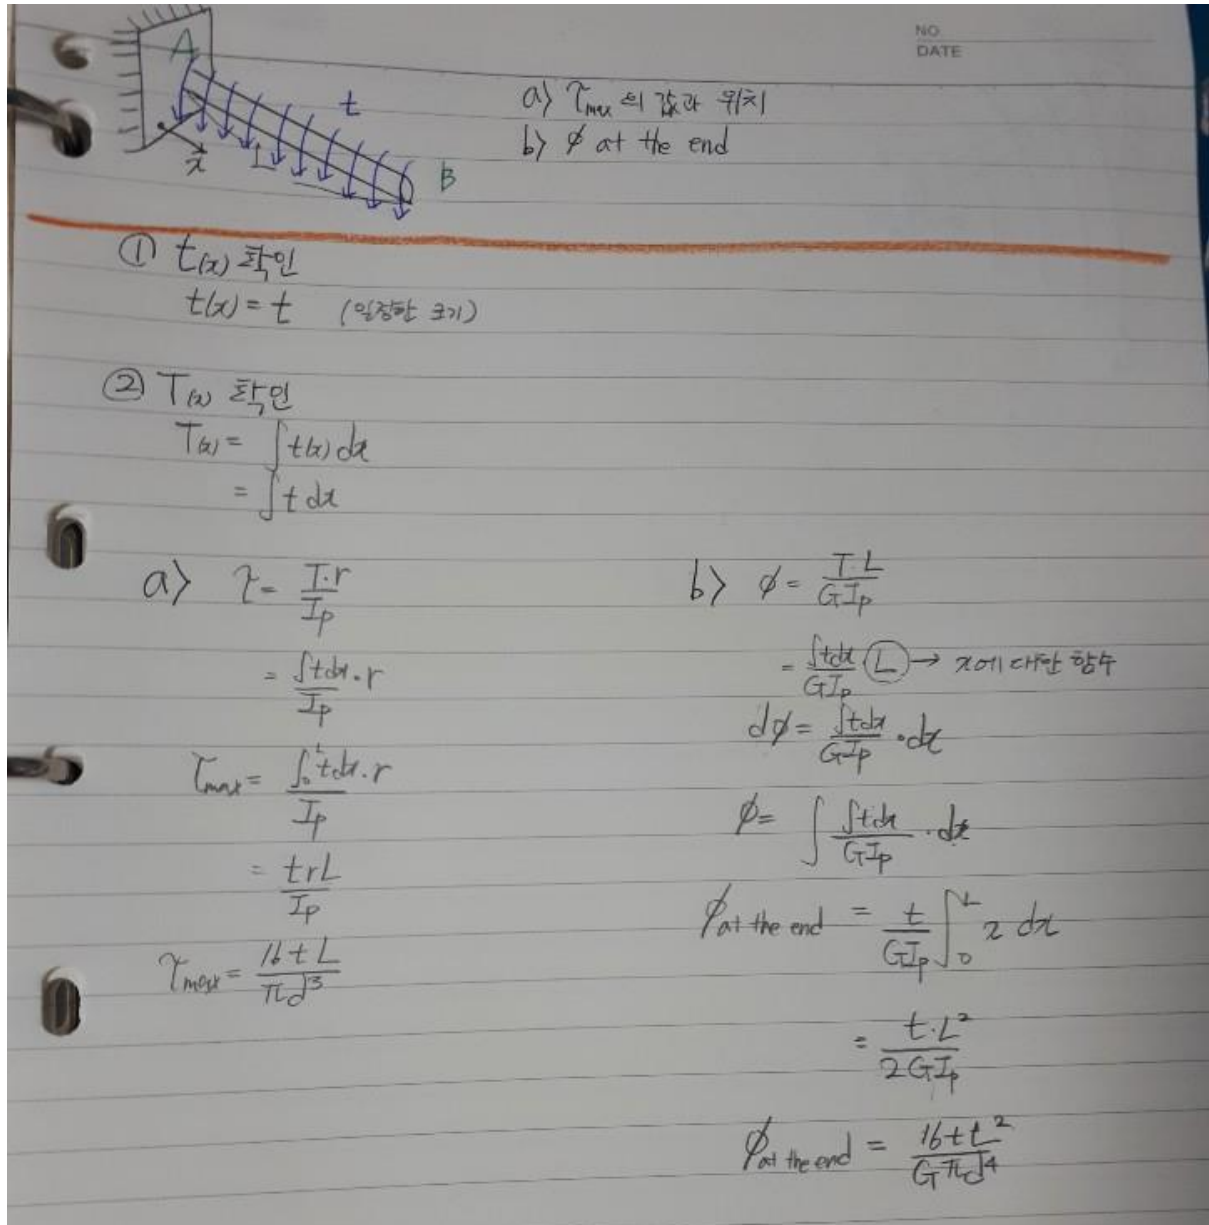 NO
DATE
A
t
L
x
B
a) τmax의 값과 위치
b) φ at the end
① t(x) 확인
t(x) = t (일정한 크기)
② T(x) 확인
T(x) = ∫t(x) dx
= ∫t dx
a) τ = T·r / Ip
= ∫tdx·r / Ip
τmax = ∫₀ᴸ tdx·r / Ip
= trL / Ip
τmax = 16tL / πd³
b) φ = T·L / GIp
= ∫tdx / GIp L → x에 대한 함수
dφ = ∫tdx / GIp · dx
φ = ∫ ∫tdx / GIp · dx
φat the end = t / GIp ∫₀ᴸ x dx
= t·L² / 2GIp
φat the end = 16tL² / Gπd⁴